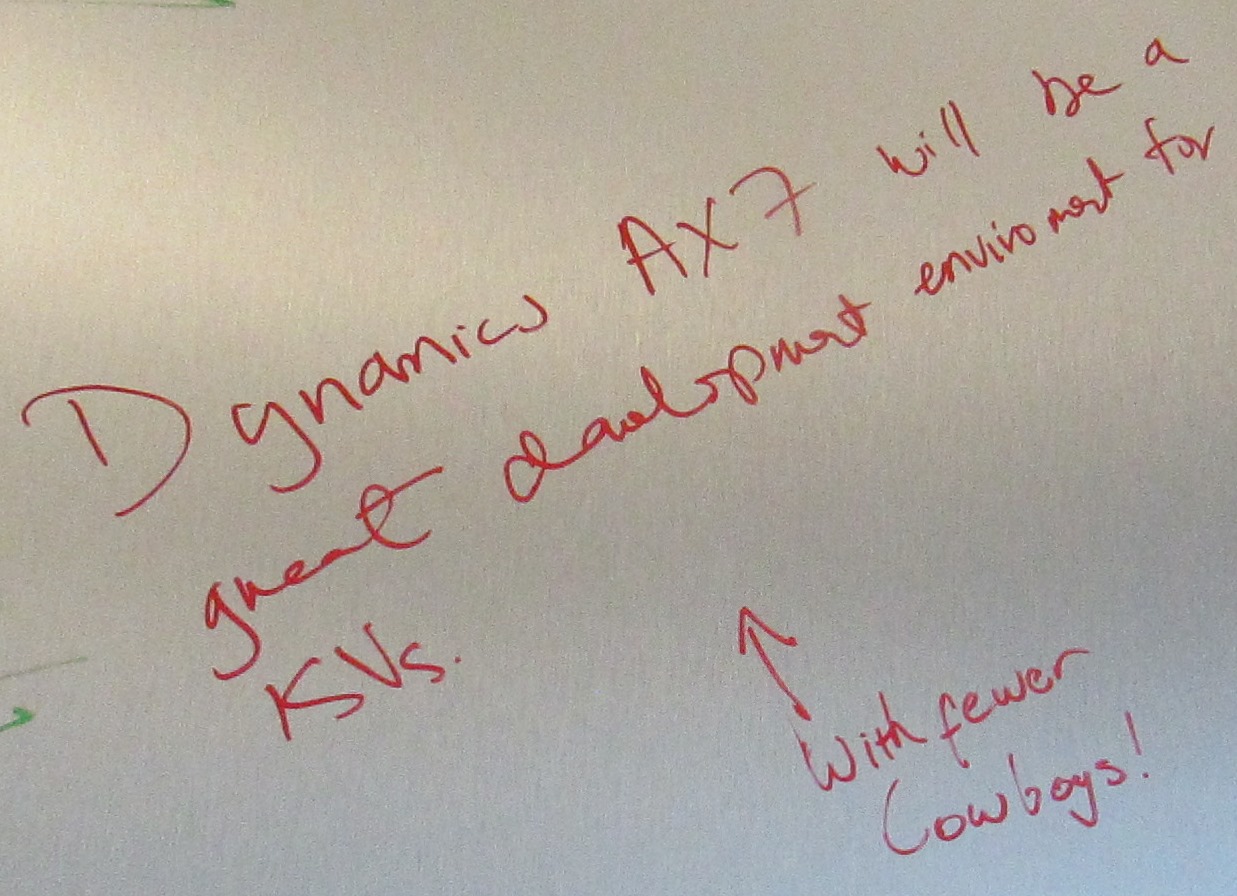 Dynamics AX7 will be a
great development enviroment for
ISVs.
With fewer
Cowboys!